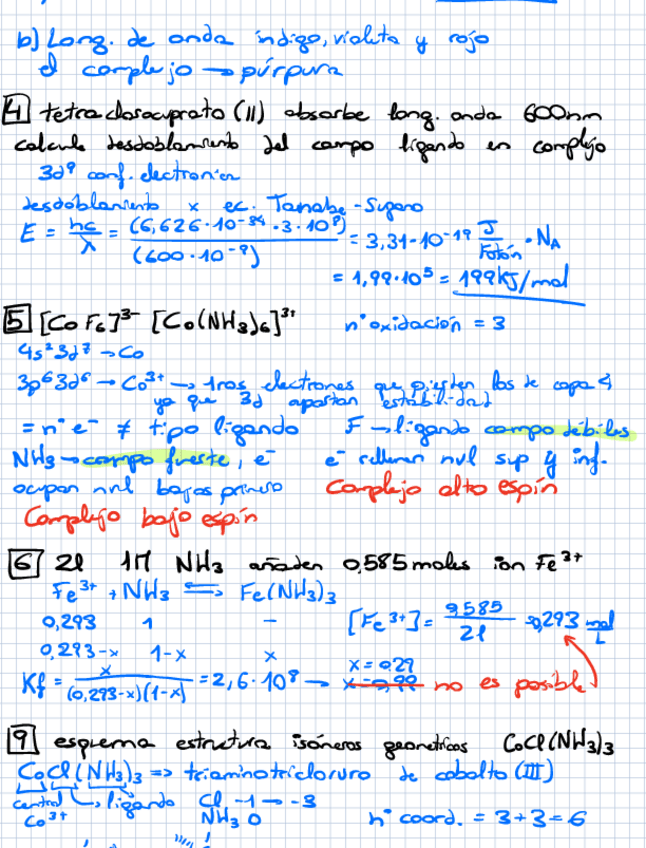 b) Long. de onda índigo, violeta y rojo
el complejo → púrpura
4 tetraclorocuprato (II) absorbe long. onda 600nm
calcula desdoblamiento del campo ligando en complejo
3d⁹ conf. electrónica
desdoblamiento x ec. Tanabe-Sugano
E = hc/λ = (6,626·10⁻³⁴·3·10⁸)/(600·10⁻⁹) = 3,31·10⁻¹⁹ J/Fotón · NA
= 1,99·10⁵ = 199kJ/mol
5 [CoF₆]³⁻ [Co(NH₃)₆]³⁺ nº oxidación = 3
4s²3d⁷ → Co
3p⁶3d⁶ → Co³⁺ → 1ros electrones que pierden los de capa 4
ya que 3d aportan estabilidad
= nº e⁻ ≠ tipo ligando F → ligando campo débiles
NH₃ → campo fuerte, e⁻ e⁻ rellenan nvl sup y inf.
ocupan nvl bajos primero Complejo alto espín
Complejo bajo espín
6 2l 1M NH₃ añaden 0,585 moles ion Fe³⁺
Fe³⁺ + NH₃ ⇌ Fe(NH₃)₃
0,293 1 - [Fe³⁺] = 0,585/2l = 0,293 mol/L
0,293-x 1-x x
Kf = x/((0,293-x)(1-x)) = 2,6·10⁸ → x = 0,29
x = 0,99 no es posible
9 esquema estructura isómeros geométricos CoCl(NH₃)₃
CoCl(NH₃)₃ => triaminotricloruro de cobalto (III)
central ligando Cl -1 → -3
Co³⁺ NH₃ 0 nº coord. = 3+3=6